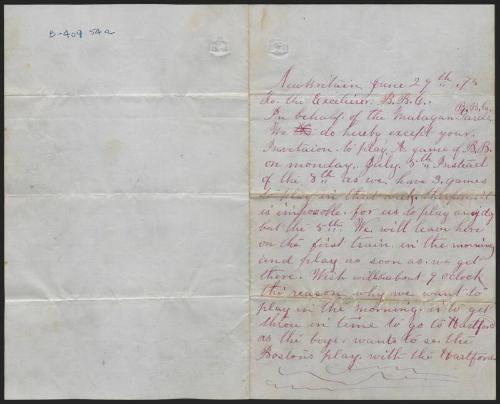 B-409.54a
New Britain June 29th, 75
To the Excelsior B.B.C.
B.B.C.
In behalf of the Mulagan
We do hereby except your
Invetaion to play A game of B.B.
on monday, July 5th Instead
of the 8th as we have 3 games
to play in that week therefore it
is imposible for us to play any day
but the 5th. We will leave here
on the first train in the morning
and play as soon as we get
there. Wich will be about 9 oclock
the reason why we want to
play in the morning is to get
throu in time to go to Hartford
as the boys wants to see the
Bostons play with the Hartfords